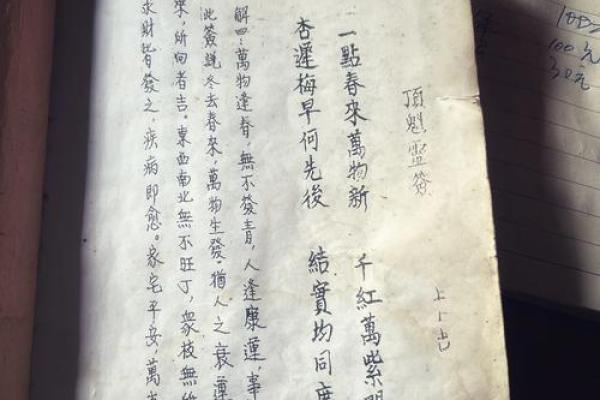 100元
30元
頂魁靈簽
上上吉
一點春來萬物新 千紅萬紫
杏遲梅早何先後 結實均同
解曰：萬物逢春，無不發青，人逢康運，事
此簽說冬去春來，萬物生發。猶人之衰運
來，所向者吉。東西南北無不旺丁，衆枝無
求財皆發之，疾病即愈。家宅平安，萬